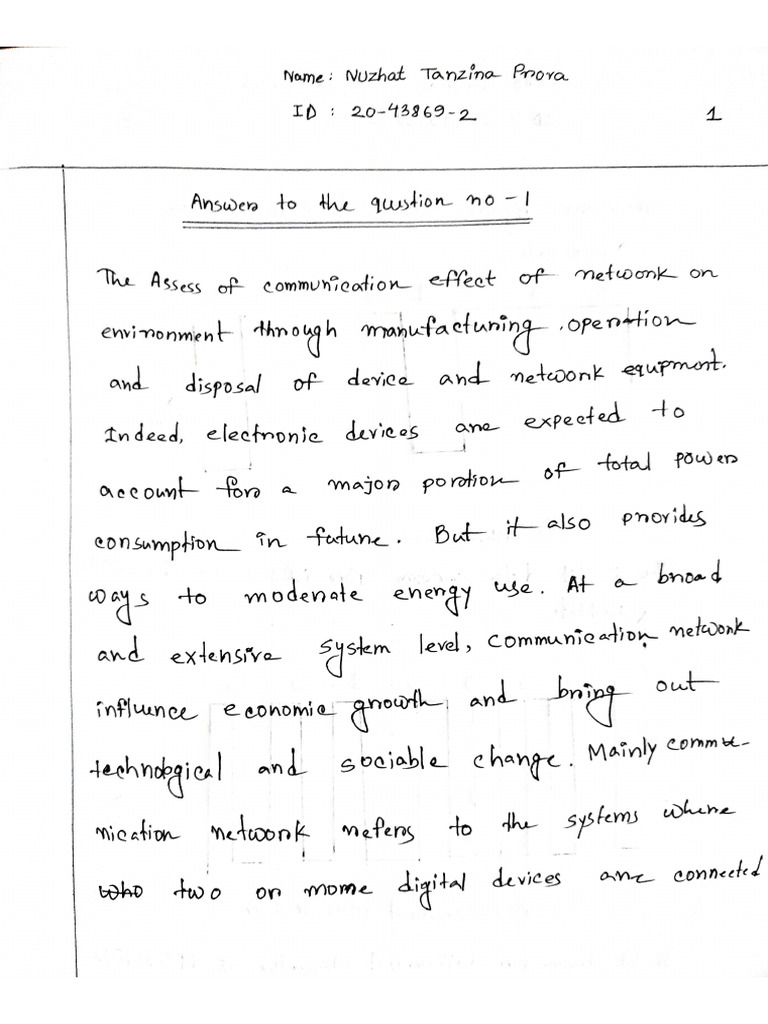 Name: Nuzhat Tanzina Prova
ID : 20-43869-2
1
Answer to the question no - 1
The Assess of communication effect of network on
environment through manufacturing, operation
and disposal of device and network equipment.
Indeed, electronic devices are expected to
account for a major portion of total power
consumption in future. But it also provides
ways to moderate energy use. At a broad
and extensive system level, communication network
influence economic growth and bring out
technological and sociable change. Mainly commu-
nication network refers to the systems where
who two or more digital devices are connected